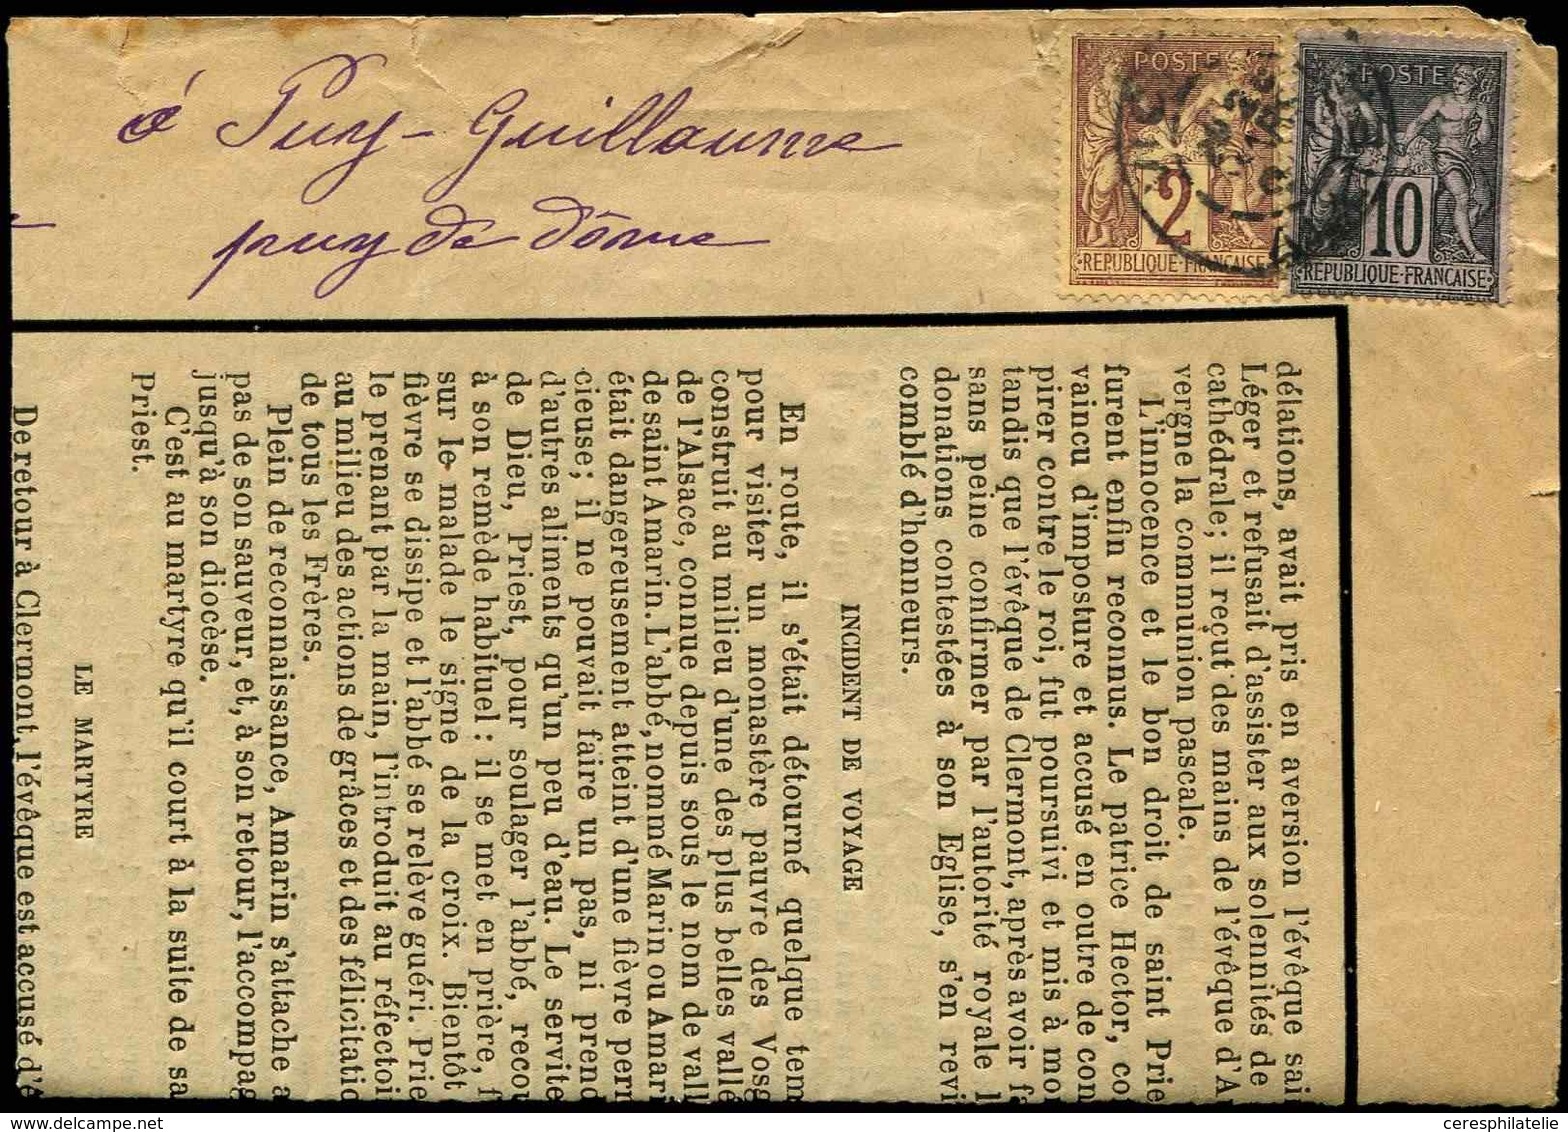 à Puy-Guillaume
puy de dôme
POSTE
2
REPUBLIQUE·FRANÇAISE
POSTE
10
REPUBLIQUE·FRANÇAISE
délations, avait pris en aversion l'évêque sai
Léger et refusait d'assister aux solennités de
cathédrale; il reçut des mains de l'évêque d'A
vergne la communion pascale.
L'innocence et le bon droit de saint Prie
furent enfin reconnus. Le patrice Hector, co
vaincu d'imposture et accusé en outre de con
pirer contre le roi, fut poursuivi et mis à mo
tandis que l'évêque de Clermont, après avoir fa
sans peine confirmer par l'autorité royale l
donations contestées à son Eglise, s'en revi
comblé d'honneurs.
INCIDENT DE VOYAGE
En route, il s'était détourné quelque tem
pour visiter un monastère pauvre des Vosg
construit au milieu d'une des plus belles vallé
de l'Alsace, connue depuis sous le nom de vall
de saint Amarin. L'abbé, nommé Marin ou Amari
était dangereusement atteint d'une fièvre pern
cieuse; il ne pouvait faire un pas, ni prend
d'autres aliments qu'un peu d'eau. Le servite
de Dieu, Priest, pour soulager l'abbé, recou
à son remède habituel : il se met en prière, f
sur le malade le signe de la croix. Bientôt
fièvre se dissipe et l'abbé se relève guéri. Prie
le prenant par la main, l'introduit au réfectoi
au milieu des actions de grâces et des félicitatio
de tous les Frères.
Plein de reconnaissance, Amarin s'attache a
pas de son sauveur, et, à son retour, l'accompag
jusqu'à son diocèse.
C'est au martyre qu'il court à la suite de sa
Priest.
LE MARTYRE
De retour à Clermont, l'évêque est accusé d'é
delcampe.net
ceresphilatelie